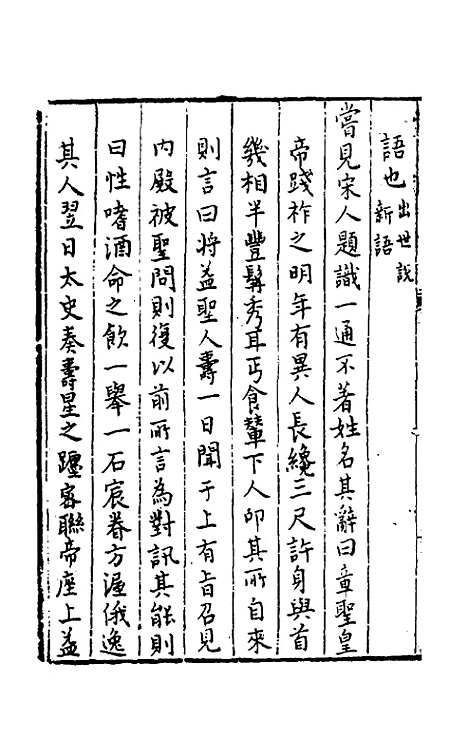 語也出世說新語
嘗見宋人題識一通不著姓名其辭曰章聖皇
帝踐祚之明年有異人長纔三尺許身與首
幾相半豐髯秀耳丐食輦下人叩其所自來
則言曰將益聖人壽一日聞于上有旨召見
內殿被聖問則復以前所言為對訊其能則
曰性嗜酒命之飲一舉一石宸眷方渥俄逸
其人翌日太史奏壽星之躔密聯帝座上益